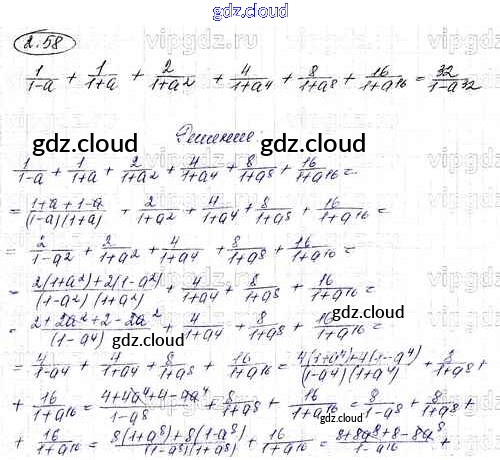 gdz.cloud
2.58
1/(1-a) + 1/(1+a) + 2/(1+a²) + 4/(1+a⁴) + 8/(1+a⁸) + 16/(1+a¹⁶) = 32/(1-a³²)
Решение
gdz.cloud gdz.cloud
1/(1-a) + 1/(1+a) + 2/(1+a²) + 4/(1+a⁴) + 8/(1+a⁸) + 16/(1+a¹⁶) =
= (1+a+1-a)/((1-a)(1+a)) + 2/(1+a²) + 4/(1+a⁴) + 8/(1+a⁸) + 16/(1+a¹⁶) =
= 2/(1-a²) + 2/(1+a²) + 4/(1+a⁴) + 8/(1+a⁸) + 16/(1+a¹⁶) =
= (2(1+a²)+2(1-a²))/((1-a²)(1+a²)) + 4/(1+a⁴) + 8/(1+a⁸) + 16/(1+a¹⁶) =
gdz.cloud gdz.cloud
= (2+2a²+2-2a²)/(1-a⁴) + 4/(1+a⁴) + 8/(1+a⁸) + 16/(1+a¹⁶) =
= 4/(1-a⁴) + 4/(1+a⁴) + 8/(1+a⁸) + 16/(1+a¹⁶) = (4(1+a⁴)+4(1-a⁴))/((1-a⁴)(1+a⁴)) + 8/(1+a⁸) +
+ 16/(1+a¹⁶) = (4+4a⁴+4-4a⁴)/(1-a⁸) + 8/(1+a⁸) + 16/(1+a¹⁶) = 8/(1-a⁸) + 8/(1+a⁸) +
+ 16/(1+a¹⁶) = (8(1+a⁸)+8(1-a⁸))/((1-a⁸)(1+a⁸)) + 16/(1+a¹⁶) = (8+8a⁸+8-8a⁸)/(1-a¹⁶) +
gdz.cloud